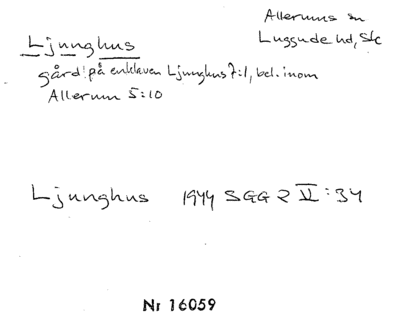 Ljunghus
Allerums sn
Luggude hd, Sk
gård på enklaven Ljunghus 7:1, bel. inom
Allerum 5:10
Ljunghus 1944 SGG 2 V:34
Nr 16059